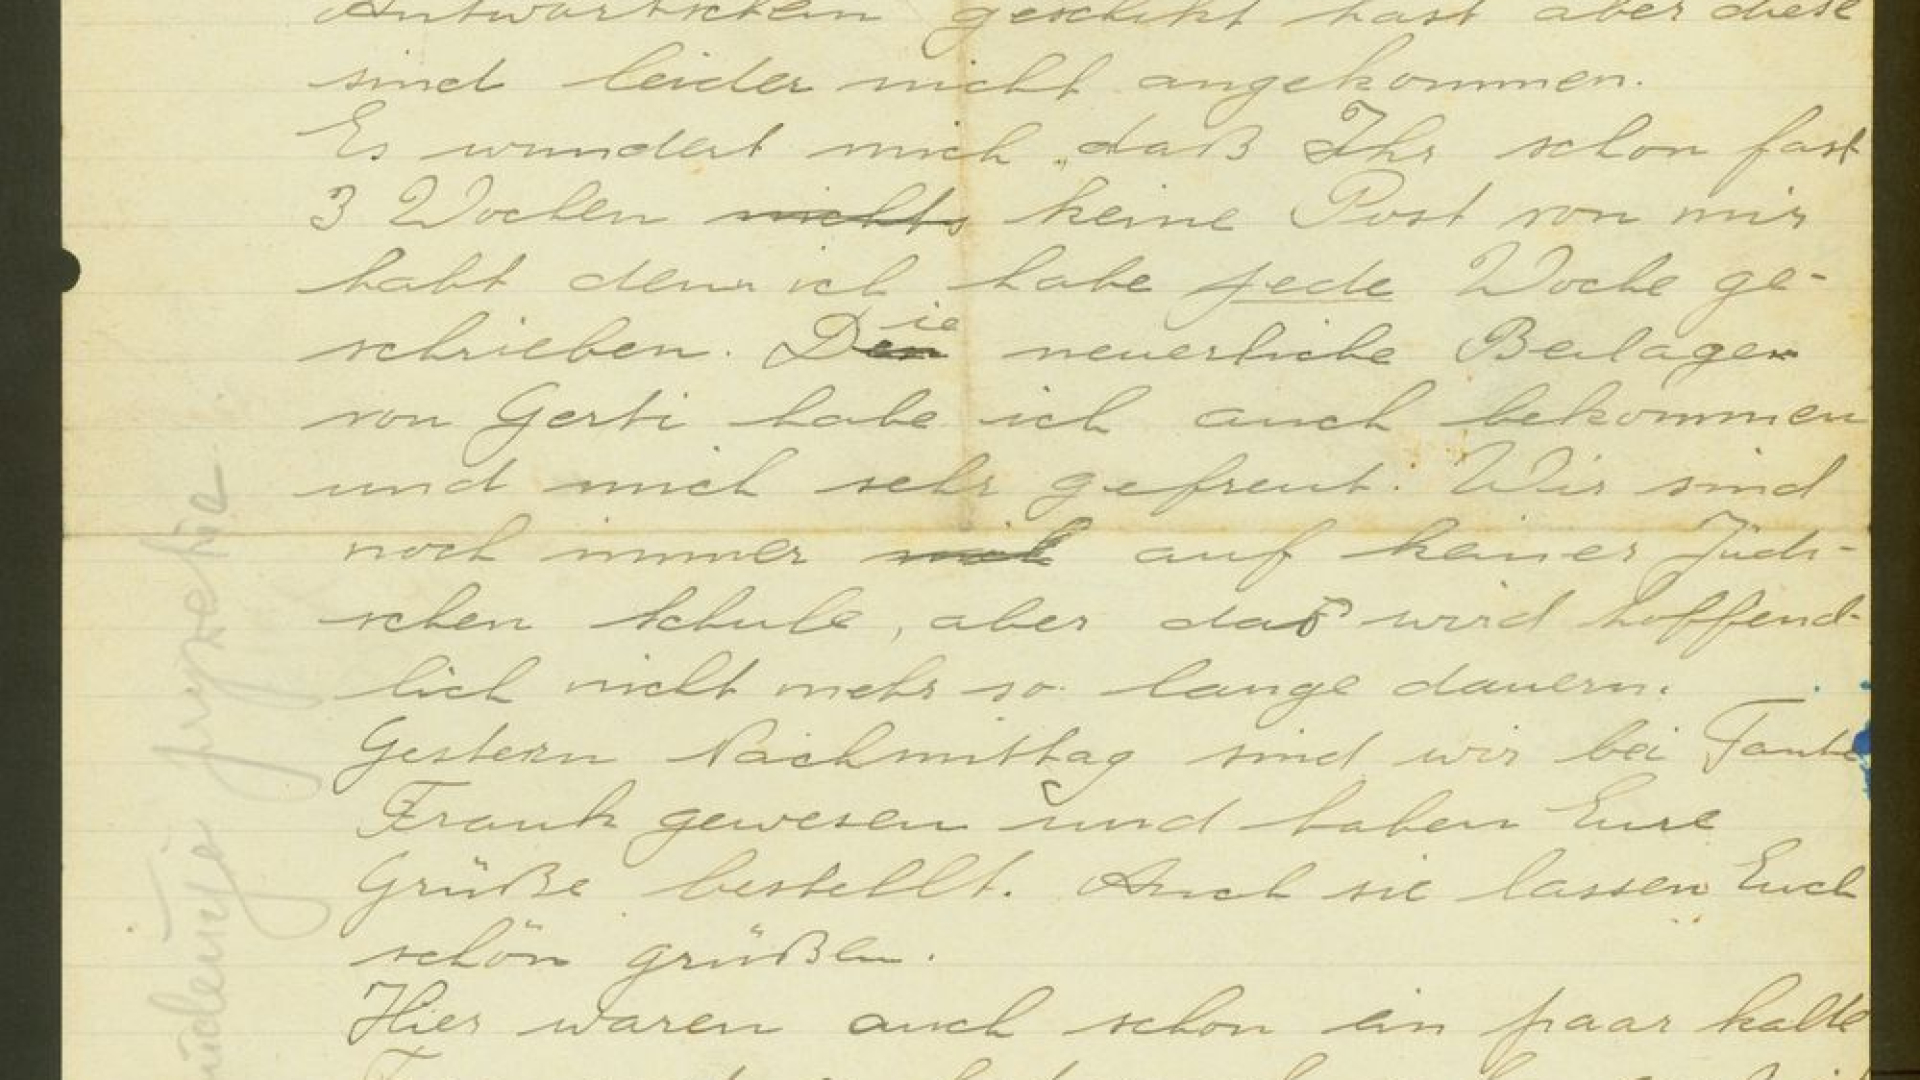 Antwortschein geschikt hast aber diese
sind leider nicht angekommen.
Es wundert mich, daß Ihr schon fast
3 Wochen nichts keine Post von mir
habt denn ich habe jede Woche ge-
schrieben. Den ie neuerliche Beilagen
von Gerti habe ich auch bekommen
und mich sehr gefreut. Wir sind
noch immer auf keiner Jüdi-
schen Schule, aber daß wird hoffend-
lich nicht mehr so lange dauern.
Gestern Nachmittag sind wir bei Tante
Frank gewesen und haben Eure
Grüße bestellt. Auch sie lassen Euch
schön grüßen.
Hier waren auch schon ein paar kalte